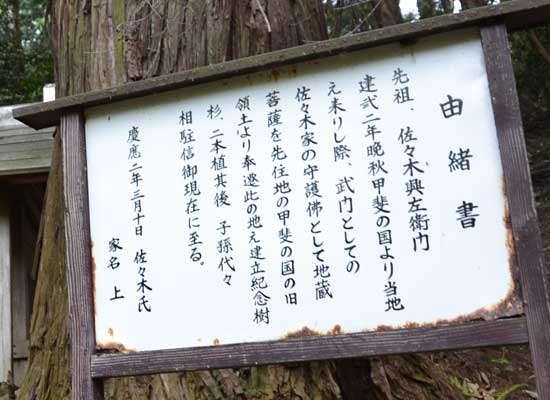 由緒書
先祖、佐々木興左衛門
建弐二年晩秋甲斐の国より当地
え来りし際、武門としての
佐々木家の守護佛として地蔵
菩薩を先住地の甲斐の国の旧
領土より奉遷此の地え建立紀念樹
杉、二本植其後 子孫代々
相駐信御現在に至る。
慶應二年三月十日 佐々木氏
家名 上